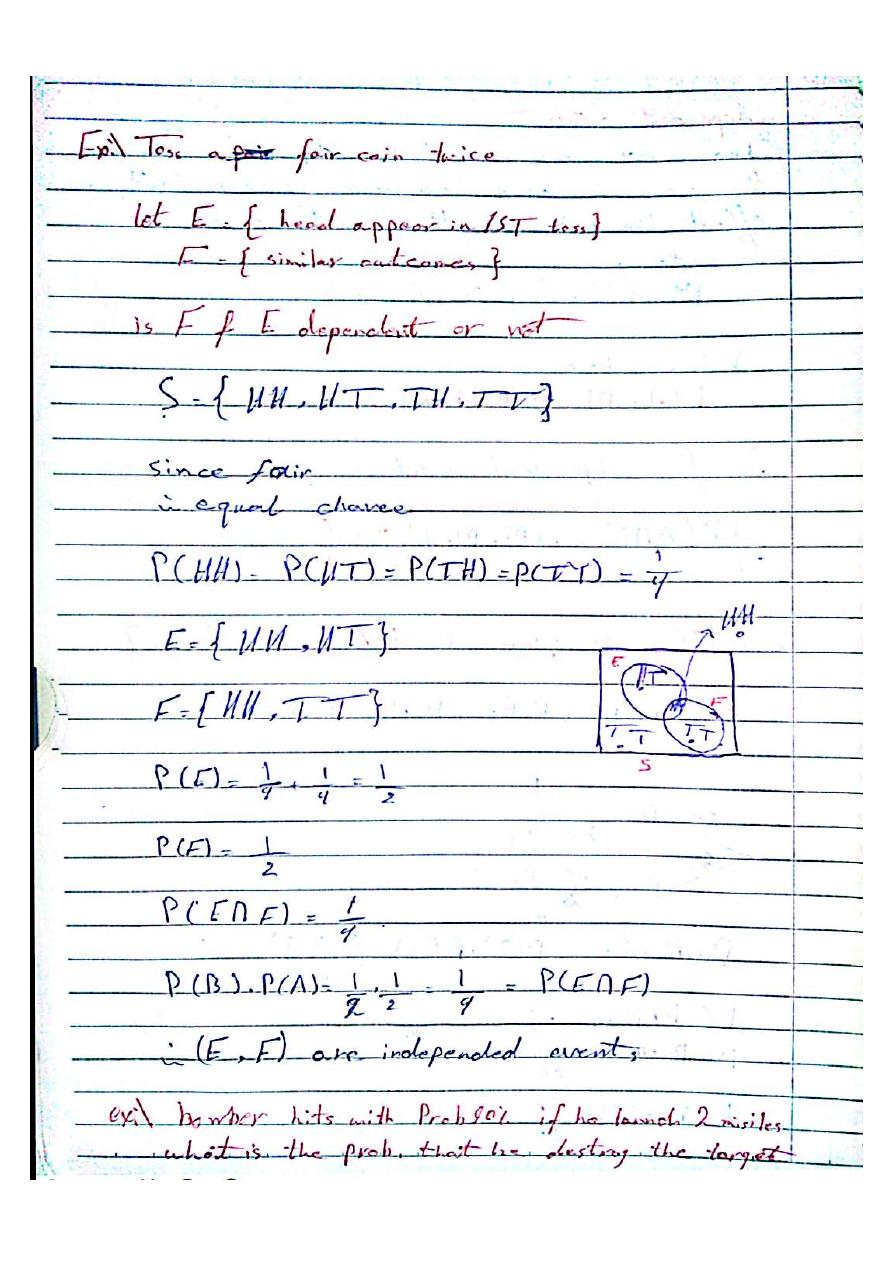 Ex:\ Toss a fair coin twice
let E = { head appear in 1ST toss}
F = { similar outcomes }
is F & E dependent or not
S = { HH, HT, TH, TT}
since fair
∴ equal chance
P(HH) = P(HT) = P(TH) = P(TT) = 1/4
HH
E = { HH, HT }
E HT
F = { HH, TT } F
T.T T.T
S
P(E) = 1/4 + 1/4 = 1/2
P(F) = 1/2
P(E∩F) = 1/4
P(B).P(A) = 1/2 . 1/2 = 1/4 = P(E∩F)
∴ (E, F) are independed events
ex:\ bomber hits with Prob 90% if he launch 2 misiles
what is the prob. that he destroy the target